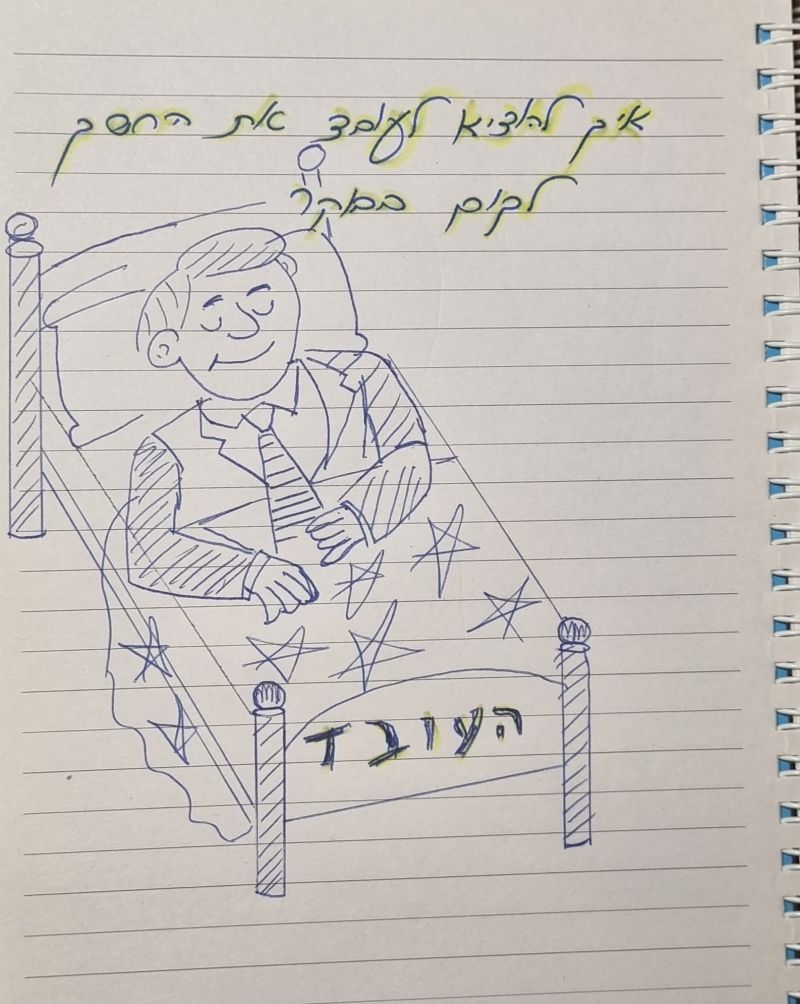 איך להוציא לעובד את החשק
לקום בבוקר
העובד